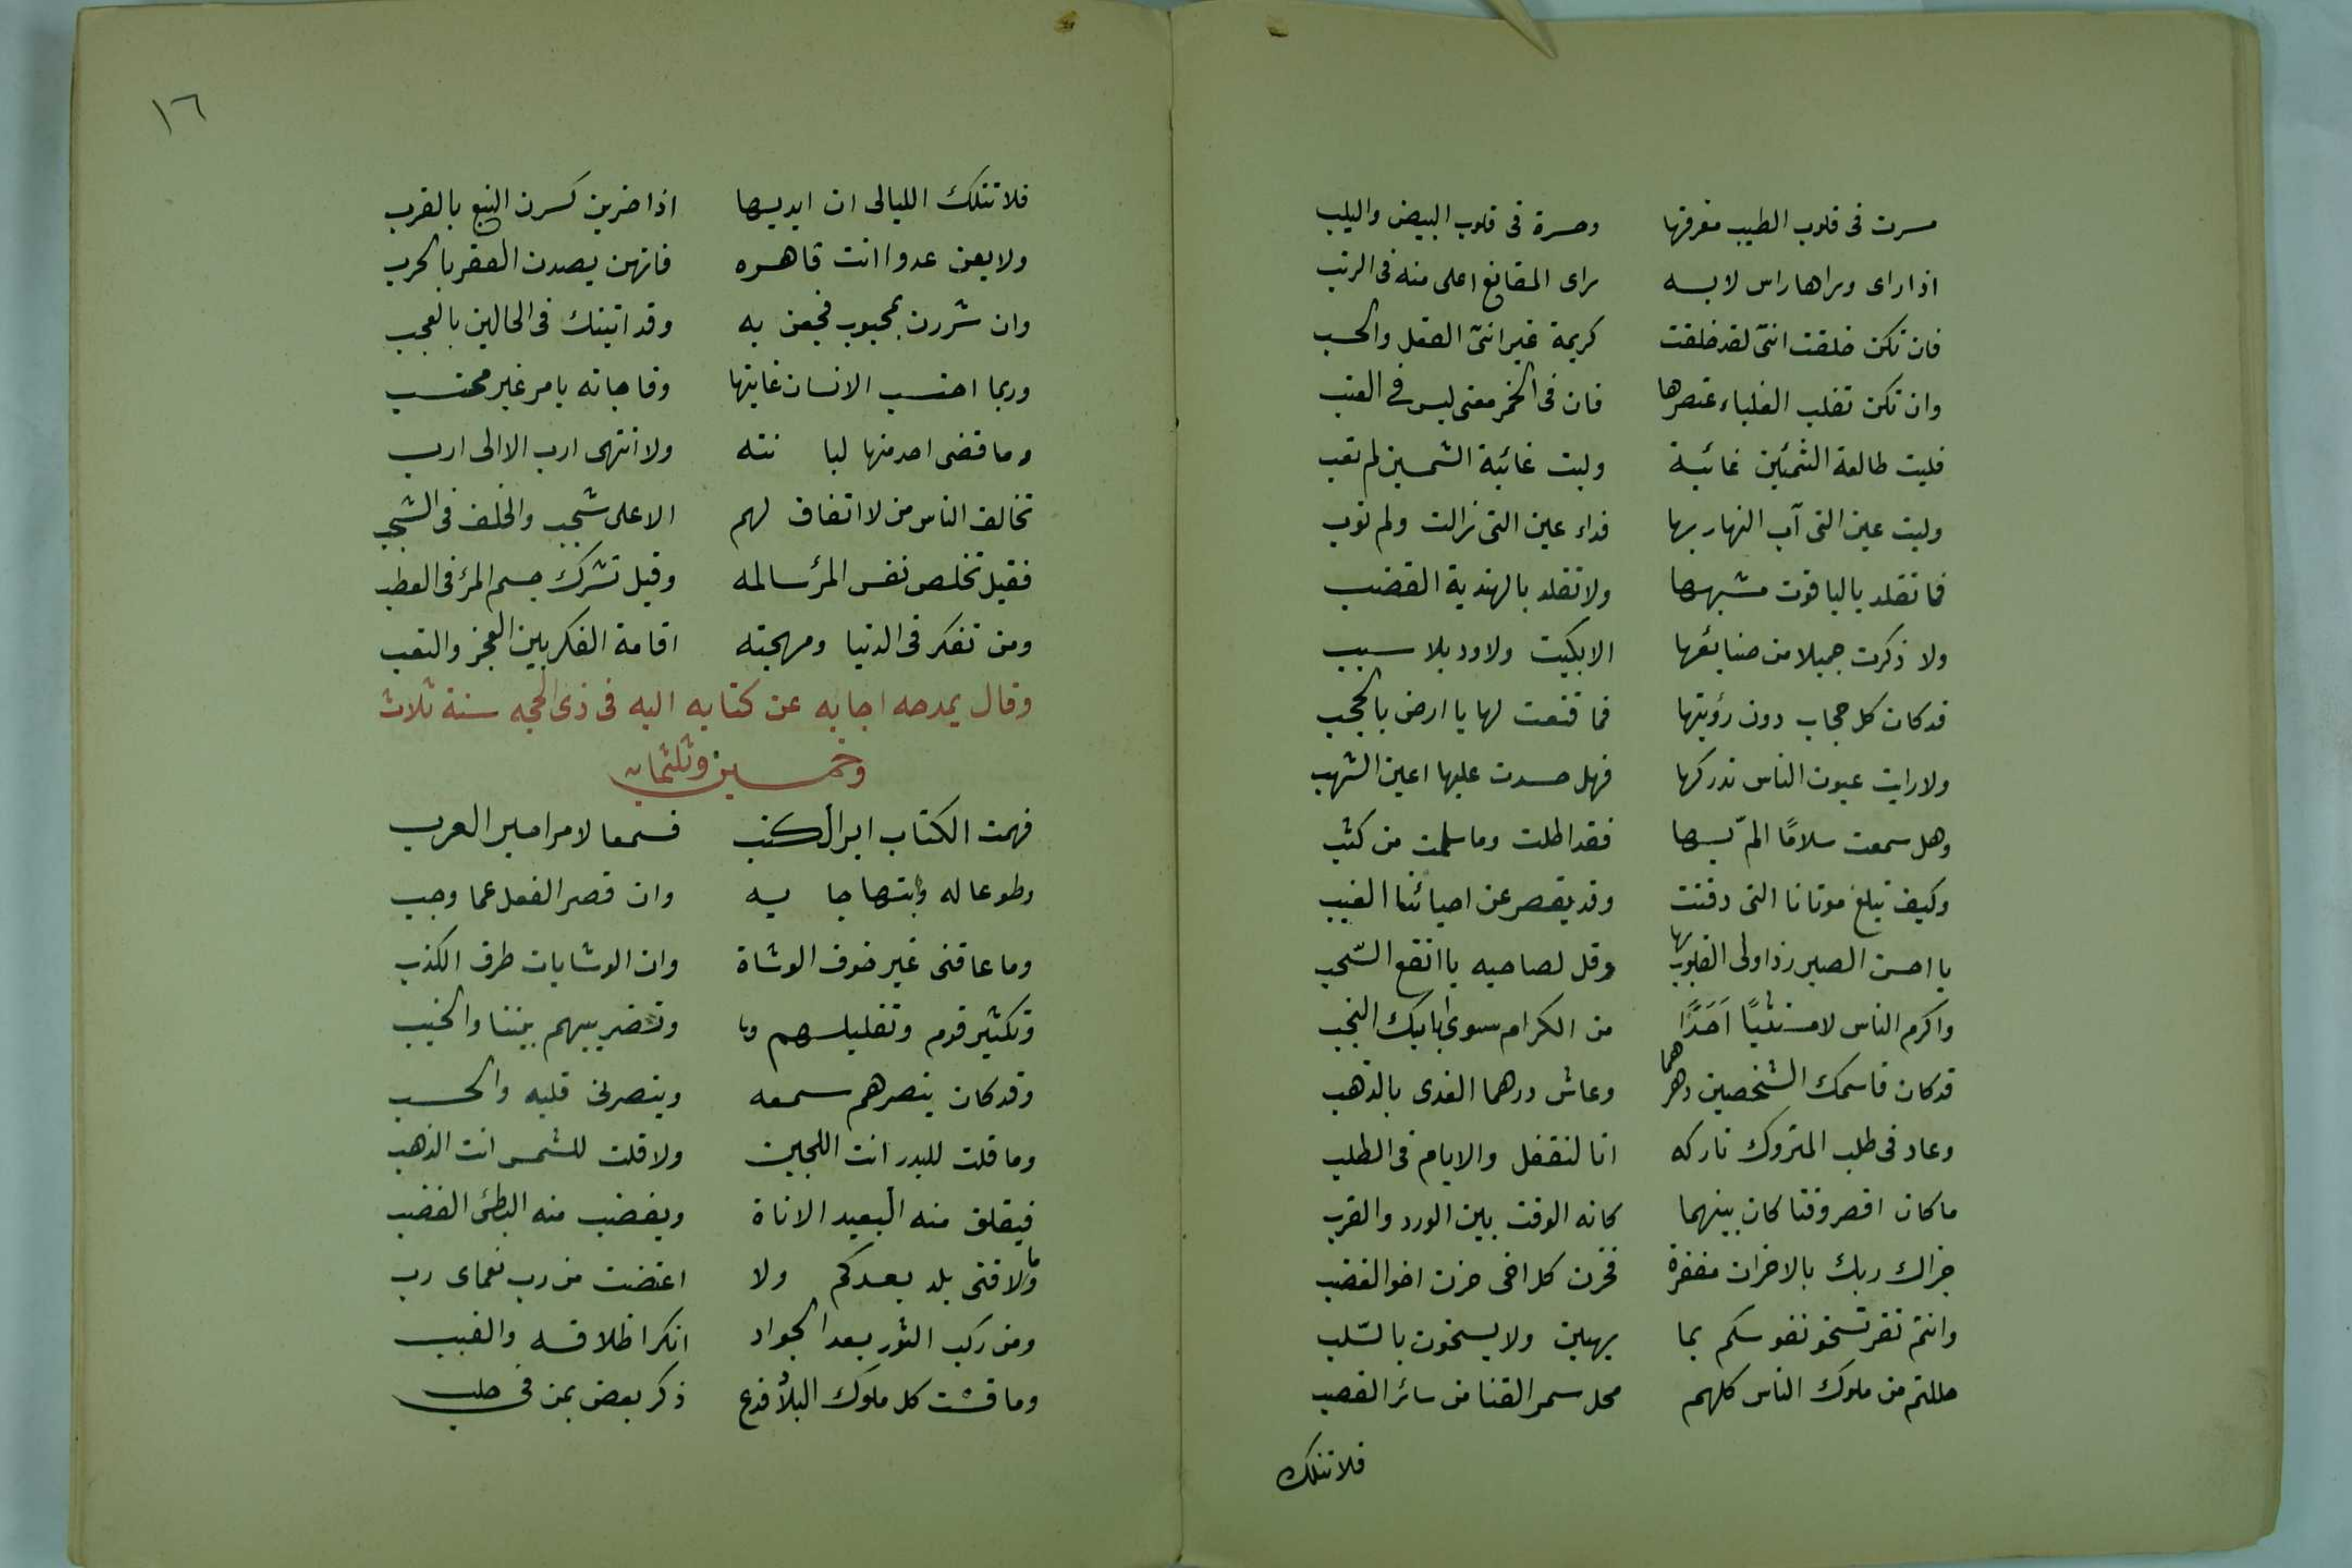 مسرت فى قلوب الطيب مفرقها وحسرة فى قلوب البيض واليلب
اذا راى وراها راس لابسه راى المقانع اعلى منه فى الرتب
فان تكن خلقت انثى لقد خلقت كريمة غير انثى العقل والحسب
وان تكن تغلب الغلباء عنصرها فان فى الخمر معنى ليس فى العنب
فليت طالعة الشمسين غائبة وليت غائبة الشمسين لم تغب
وليت عين التى آب النهار بها فداء عين التى زالت ولم تؤب
فما تقلد بالياقوت مشبهها ولا تقلد بالهندية القضب
ولا ذكرت جميلا من صنايعها الا بكيت ولا ود بلا سبب
قد كان كل حجاب دون رؤيتها فما قنعت لها يا ارض بالحجب
ولا رايت عيون الناس تدركها فهل حسدت عليها اعين الشهب
وهل سمعت سلامًا المّ بها فقد اطلت وما سلمت من كثب
وكيف تبلغ موتانا التى دفنت وقد يقصر عن احيائنا الغيب
يا احسن الصبر زر اولى القلوب بها وقل لصاحبه يا انفع السّحب
واكرم الناس لا مستثنيًا اَحَدًا من الكرام سوى ابايك النجب
قد كان قاسمك الشخصين دهرهما وعاش درهما المفدى بالذهب
وعاد فى طلب المتروك تاركه انا لنغفل والايام فى الطلب
ما كان اقصر وقتا كان بينهما كانه الوقت بين الورد والقرب
جزاك ربك بالاحزان مغفرة فحزن كل اخى حزن اخو الغضب
وانتم نفر تسخو نفوسكم بما يهبن ولا يسخون بالسّلب
حللتم من ملوك الناس كلهم محل سمر القنا من سائر القصب
فلا تنلك
١٦
فلا تنلك الليالى ان ايديها اذا ضربن كسرن النبع بالغرب
ولا يعن عدوا انت قاهره فانهن يصدن الصقر بالخرب
وان سررن بمحبوب فجعن به وقد اتينك فى الحالين بالعجب
وربما احتسب الانسان غايتها وفاجاته بامر غير محتسب
وما قضى احد منها لبا نته ولا انتهى ارب الا الى ارب
تخالف الناس من لا اتفاق لهم الا على شجب والخلف فى الشجب
فقيل تخلص نفس المرء سالمه وقيل تشرك جسم المرء فى العطب
ومن تفكر فى الدنيا ومهجته اقامه الفكر بين العجز والتعب
وقال يمدحه اجابه عن كتابه اليه فى ذى الحجه سنة ثلاث
وخمسين وثلثمايه
فهمت الكتاب ابر الكتب فسمعا لامر امير العرب
وطوعا له وابتهاجا به وان قصر الفعل عما وجب
وما عاقنى غير خوف الوشاة وان الوشايات طرق الكذب
وتكثير قوم وتقليلهم وتضريبهم بيننا والخبب
وقد كان ينصرهم سمعه وينصرنى قلبه والحسب
وما قلت للبدر انت اللجين ولا قلت للشمس انت الذهب
فيقلق منه البعيد الاناة ويغضب منه البطئ الغضب
وما لاقنى بلد بعدكم ولا اعتضت من رب نعماى رب
ومن ركب الثور بعد الجواد انكر اظلافه والغبب
وما قست كل ملوك البلاد فدع ذكر بعض بمن فى حلب